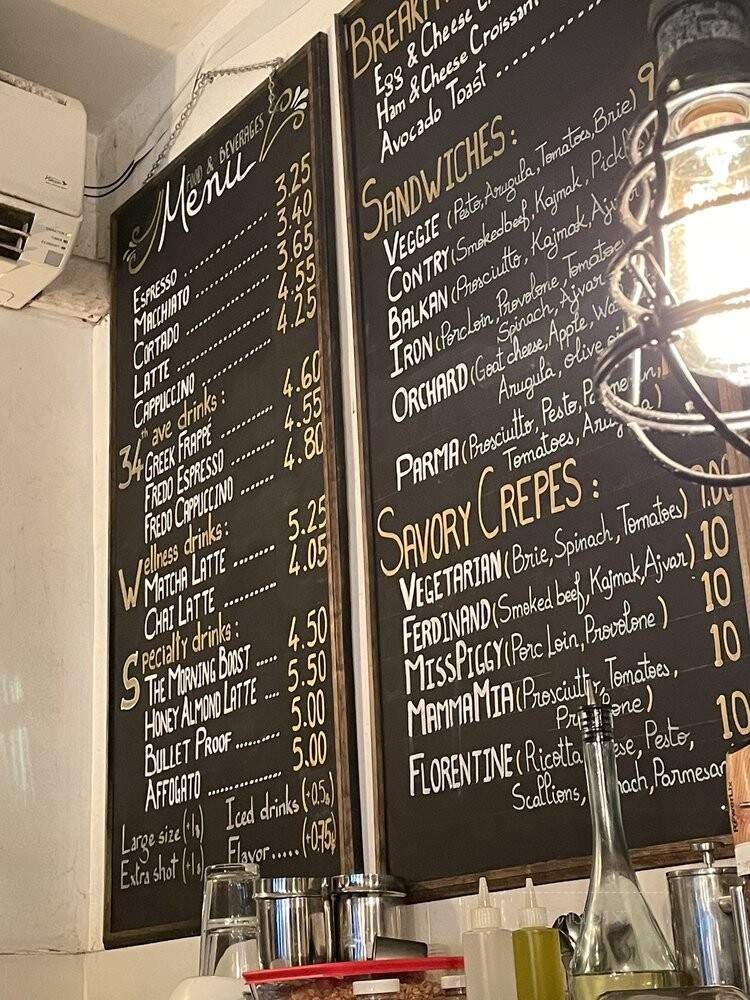 FOOD & BEVERAGES
Menu
ESPRESSO .................. 3.25
MACCHIATO .................. 3.40
CORTADO .................. 3.65
LATTE .................. 4.55
CAPPUCCINO .................. 4.25
34th ave drinks:
GREEK FRAPPE .......... 4.60
FREDO ESPRESSO ........ 4.55
FREDO CAPPUCCINO ....... 4.80
Wellness drinks:
MATCHA LATTE ........ 5.25
CHAI LATTE .......... 4.05
Specialty drinks:
THE MORNING BOOST ..... 4.50
HONEY ALMOND LATTE .... 5.50
BULLET PROOF ......... 5.00
AFFOGATO ............... 5.00
Large size (+1$) Iced drinks (+0.5$)
Extra shot (+1$) Flavor..... (+0.75$)
Egg & Cheese
Ham & Cheese Croissant
Avocado Toast ............
SANDWICHES:
VEGGIE (Pesto, Arugula, Tomatoes, Brie) 9
CONTRY (Smoked beef, Kajmak,
BALKAN (Prosciutto, Kajmak,
IRON (Porc Loin, Provolone, Tomatoes
Spinach, Ajvar
ORCHARD (Goat cheese, Apple,
Arugula, olive
PARMA (Prosciutto, Pesto,
Tomatoes,
SAVORY CREPES:
VEGETARIAN (Brie, Spinach, Tomatoes)
FERDINAND (Smoked beef, Kajmak, Ajvar) 10
MISSPIGGY (Porc Loin, Provolone) 10
MAMMAMIA (Prosciutto, Tomatoes, 10
FLORENTINE (Ricotta Pesto, 10
Scallions, Parmesan